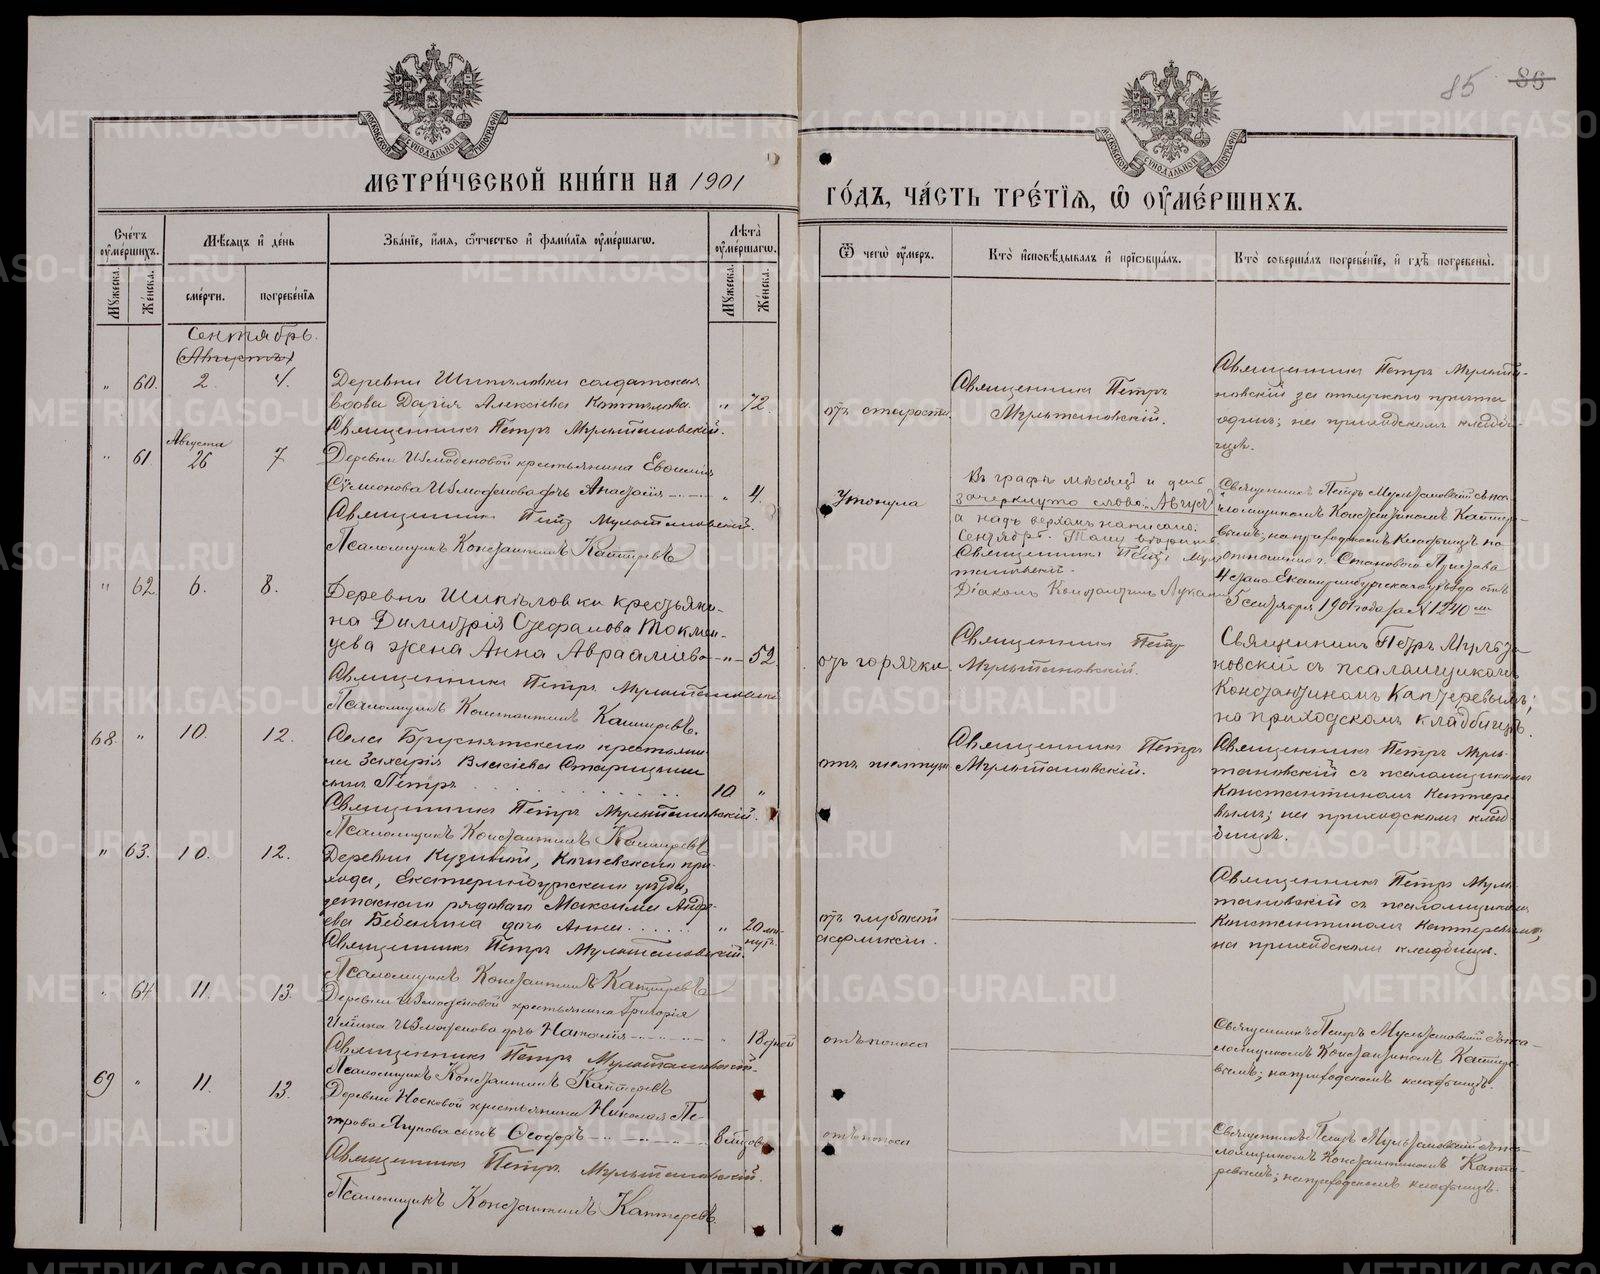 85 86
МЕТРИ́ЧЕСКОЙ КНИ́ГИ НА 1901
ГО́ДЪ, ЧА́СТЬ ТРЕ́ТІѦ, Ѽ ОУ҆МЕ́РШИХЪ.
Сче́тъ оу҆ме́ршихъ.
Мꙋжеска.
Же́нска.
Мѣ́сѧцъ и҆ де́нь
сме́рти.
погребе́нїѧ
Зва́нїе, и҆́мѧ, ѻ҆́тчество и҆ фами́лїѧ оу҆ме́ршагѡ.
Лѣ́та̀ оу҆ме́ршагѡ.
Мꙋжеска.
Же́нска.
Ѿ чегѡ̀ оу҆́меръ.
Кто̀ и҆сповѣ́дывалъ и҆ прїѡбща́лъ.
Кто̀ соверша́лъ погребе́нїе, и҆ гдѣ̀ погребены̀.
Сентябрь.
(Августъ)
„ 60. 2. 4.
Деревни Шипѣловки солдатская
вдова Дарія Алексіева „ 72.
Священникъ Петръ Мультановскій.
отъ старости.
Священникъ Петръ
Мультановскій.
Священникъ Петръ Мульта-
новскій за
одинъ; на приходскомъ кладби-
щѣ.
„ 61. Августа 26 7
Деревни Измоденовой крестьянина Евѳимія
Сѵмеонова Измоденова дочь Анастасія „ 4.
Священникъ Петръ Мультановскій.
Псаломщикъ Константинъ Каптеревъ
Утонула
Въ графѣ мѣсяцъ и день
зачеркнуто слово „Августъ“
а надъ верхомъ написано:
Сентябрь. Тому вѣрить
Священникъ Петръ Муль
тановскій.
Діаконъ Константинъ
Священникъ Петръ Мультановскій съ пса-
ломщикомъ Константиномъ Каптере-
вымъ; на приходскомъ кладбищѣ по
отношенію г. Становаго Пристава
4 стана Екатеринбургскаго уѣзда отъ
5 сентября 1901 года за № 1240
„ 62. 6. 8.
Деревни Шипѣловки крестьяни-
на Димитрія Стефанова Токман-
цева жена Анна Аврааміева „ 52
Священникъ Петръ Мультановскій
Псаломщикъ Константинъ Каптеревъ.
отъ горячки
Священникъ Петръ
Мультановскій.
Священникъ Петръ Мульта-
новскій съ псаломщикомъ
Константиномъ Каптеревымъ;
на приходскомъ кладбищѣ.
68. „ 10. 12.
Села Бруснятскаго крестьяни
на Захарія Власіева Старицына
сынъ Петръ 10 „
Священникъ Петръ Мультановскій.
Псаломщикъ Константинъ Каптеревъ
отъ желтухи
Священникъ Петръ
Мультановскій.
Священникъ Петръ Муль-
тановскій съ псаломщикомъ
Константиномъ Каптере-
вымъ; на приходскомъ клад-
бищѣ.
„ 63. 10. 12.
Деревни Кузиной, при-
хода, Екатеринбургскаго уѣзда,
запаснаго рядоваго Максима Андре-
ева дочь Анна „ 20 ми-
нутъ.
Священникъ Петръ Мультановскій.
Псаломщикъ Константинъ Каптеревъ
отъ глубокой
асфиксіи.
Священникъ Петръ Муль-
тановскій съ псаломщикомъ
Константиномъ Каптеревымъ;
на приходскомъ кладбищѣ.
„ 64 11. 13.
Деревни Измоденовой крестьянина Григорія
Измоденова дочь Наталія „ 18 дней
Священникъ Петръ Мультановскій.
Псаломщикъ Константинъ Каптеревъ
отъ поноса
Священникъ Петръ Мультановскій съ пса-
ломщикомъ Константиномъ Каптере-
вымъ; на приходскомъ кладбищѣ.
69 „ 11. 13.
Деревни Носковой крестьянина Николая Пе-
трова Ягупова сынъ Ѳеодоръ
Священникъ Петръ Мультановскій.
Псаломщикъ Константинъ Каптеревъ.
отъ поноса
Священникъ Петръ Мультановскій съ пса-
ломщикомъ Константиномъ Капте-
ревымъ; на приходскомъ кладбищѣ.
METRIKI.GASO-URAL.RU